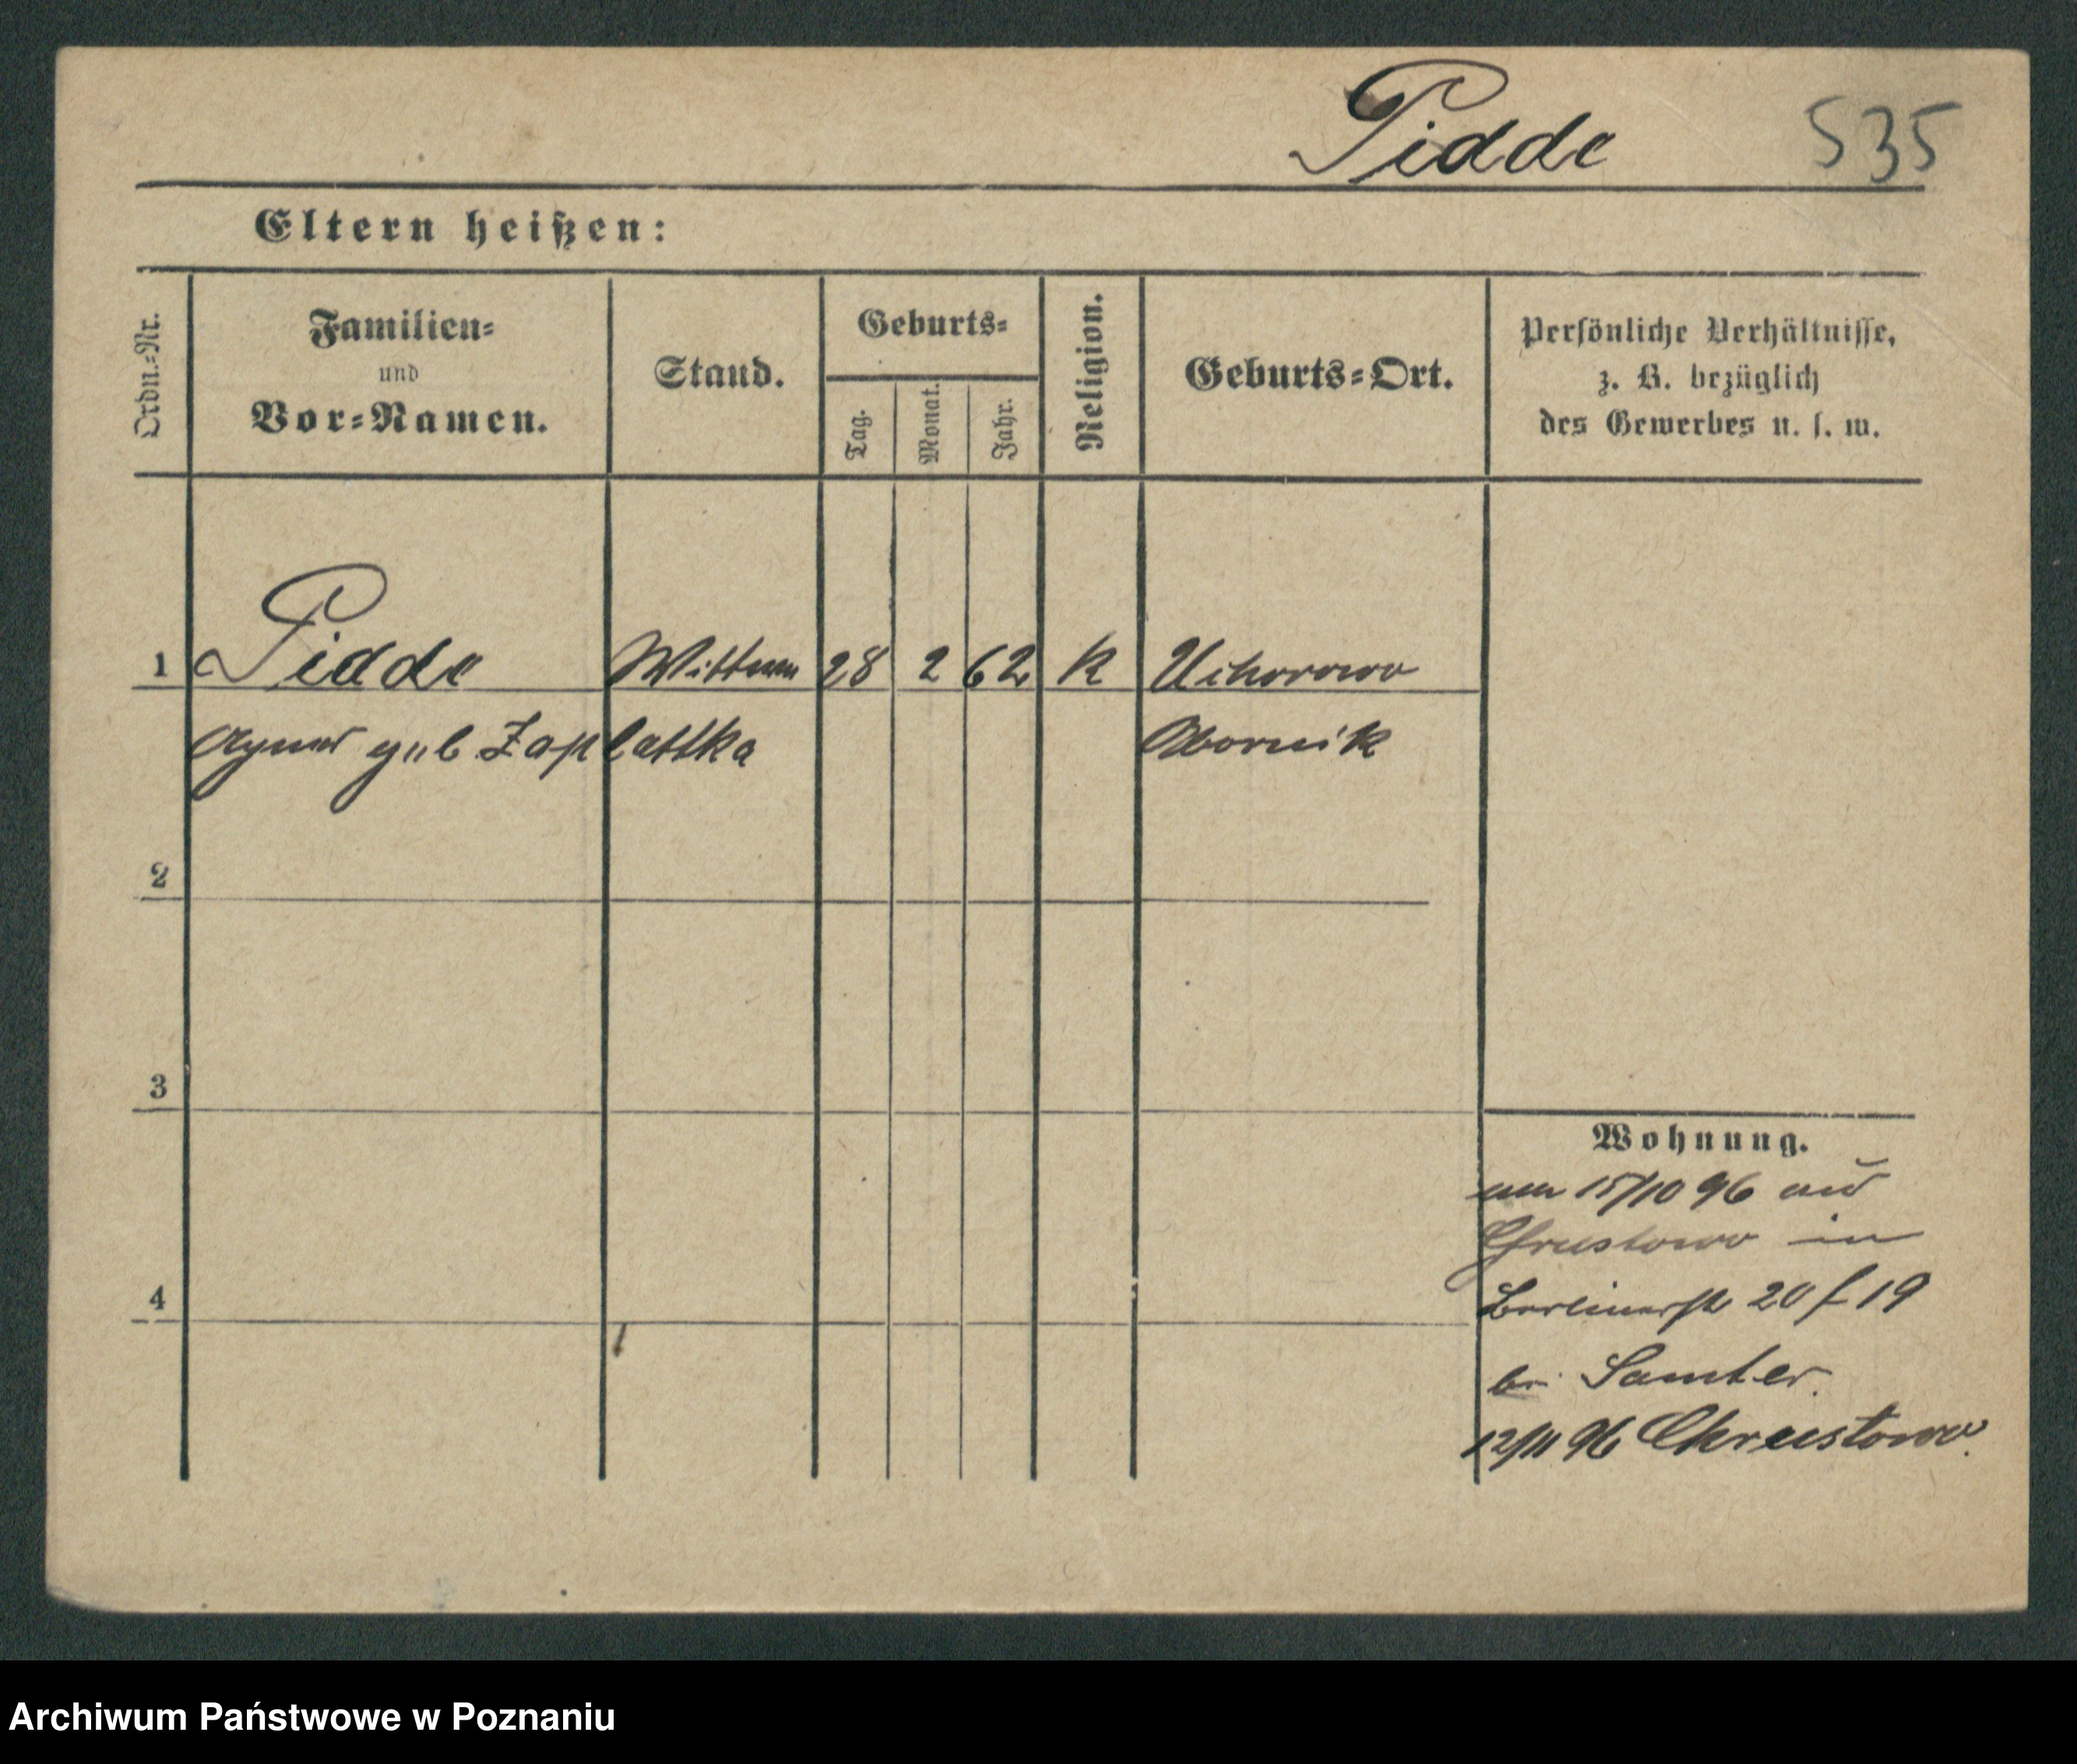 Pidde 535
Eltern heißen:
Ordn.-Nr.
Familien-
und
Vor-Namen.
Stand.
Geburts-
Tag.
Monat.
Jahr.
Religion.
Geburts-Ort.
Persönliche Verhältnisse,
z. B. bezüglich
des Gewerbes u. s. w.
1 Pidde Wittwe 28 2 62 K Uchorowo
Agnes geb Zaplattka Obornik
2
3
4
Wohnung.
am 15/10 96 aus
Chrustowo in
Berlinerstr 20 f 19
bei Samter.
12/11 96 Chrustowo.
Archiwum Państwowe w Poznaniu